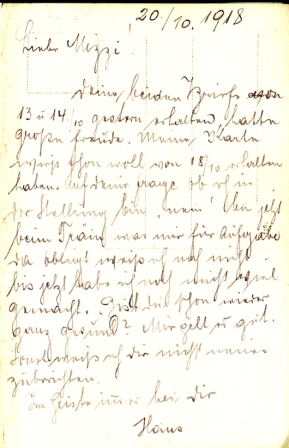 20./10. 1918
Liebe Mizzi!
Deine beiden Briefe
13 u 14./10 gestern erhalten, hatte
große Freude. Meine Karte
wirst schon woll von 18/10 erhalten
haben. Auf deine Frage ob ich in
der Stellung bin „nein“! bin jetzt
beim Train was mir für Aufgabe
da obliegt weiß ich noch nicht
bis jetzt habe ich noch nicht viel
gemacht. Bist du schon wieder
ganz gesund? Mir geht es gut.
Sonst weiß ich dir nicht neues
zuberichten.
Im Geiste immer bei dir
Hans